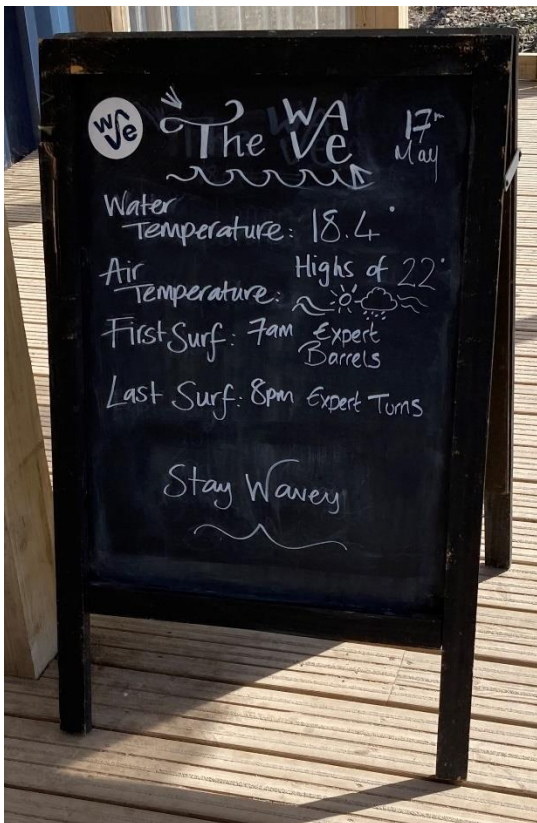 wave
The WAVe
17th
May
Water
Temperature: 18.4°
Air
Temperature: Highs of 22°
First Surf: 7am Expert
Barrels
Last Surf: 8pm Expert Turns
Stay Wavey